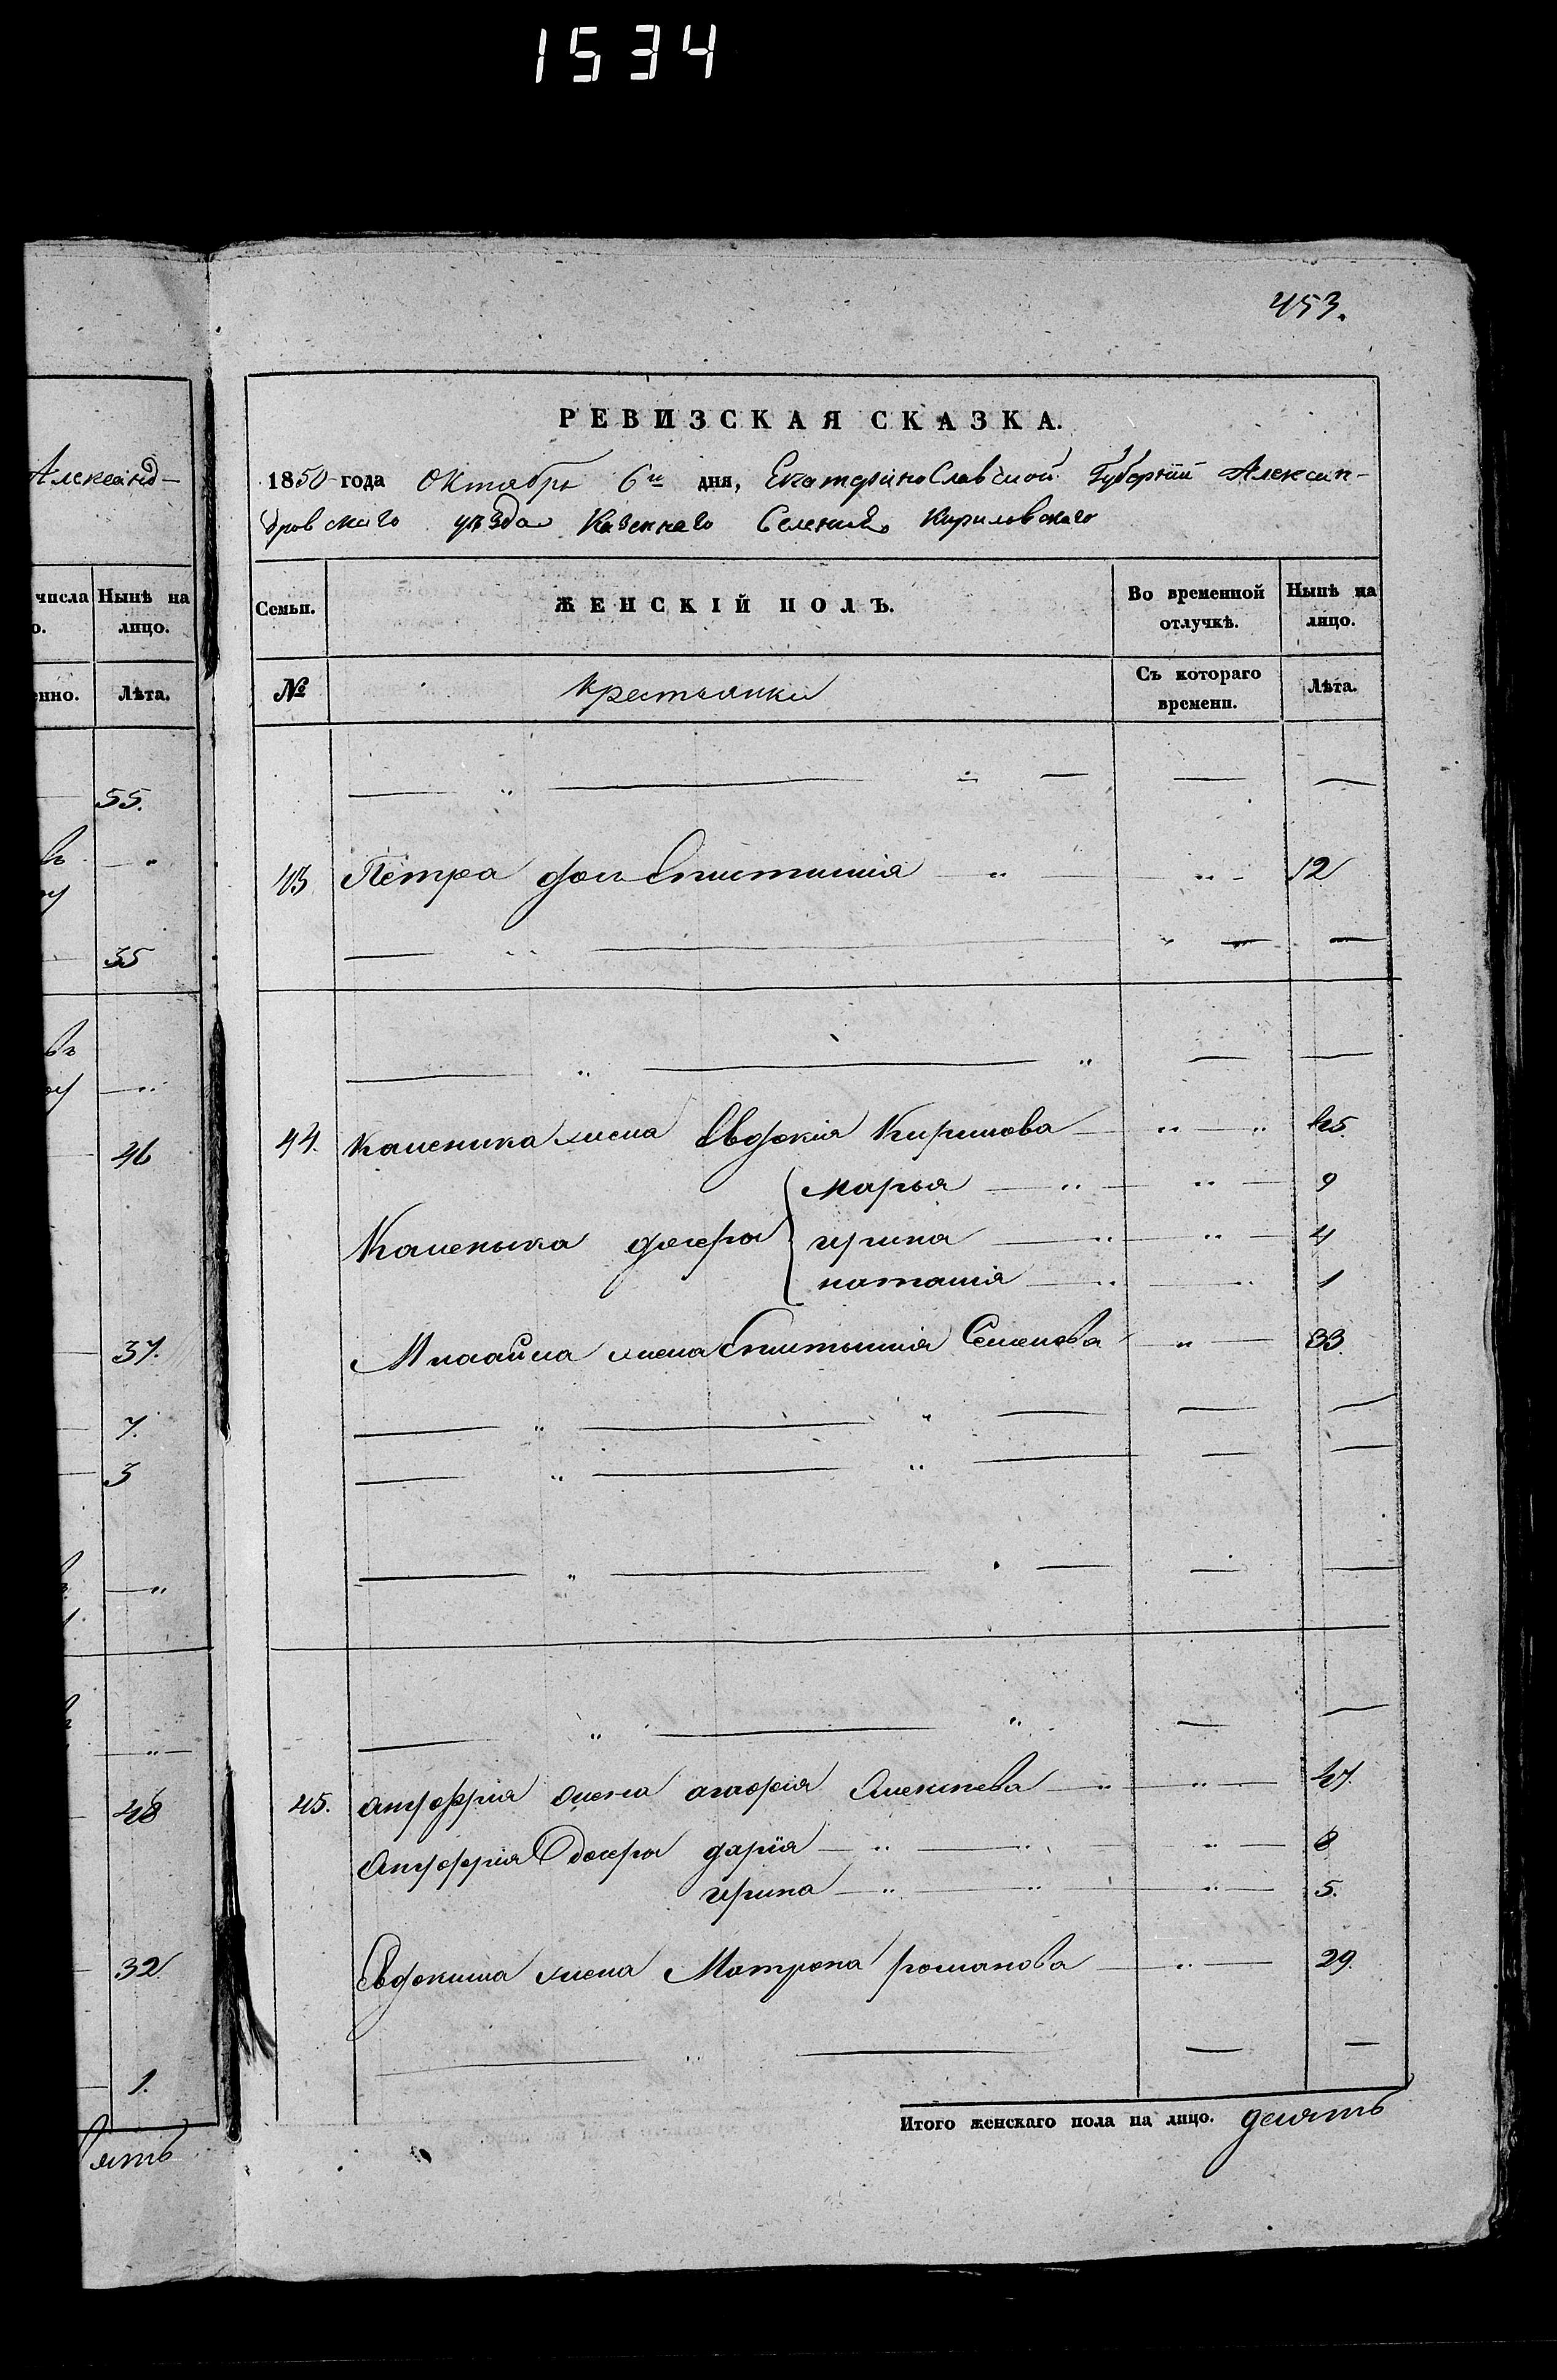 1534
453.
Александ-
РЕВИЗСКАЯ СКАЗКА.
1850 года Октября 6го дня, Екатеринославской Губернии Алексан-
дровскаго уѣзда Казеннаго Селения Кириловскаго
числа Нынѣ на
о. лицо.
нно. Лѣта.
Семьи. ЖЕНСКІЙ ПОЛЪ. Во временной отлучкѣ. Нынѣ на лицо.
№ крестьянки Съ котораго времени. Лѣта.
55.
43. Петра дочь 12
35
44. жена Евдокия Кирилова 45.
46
марья 9
дочери ирина 4
наталия 1
жена Семенова 33.
37.
7.
3
45. жена Алексѣева 47.
48
дочери дарія 8
ирина 5.
Евдокима жена Матрона романова 29.
32
1.
Итого женскаго пола на лицо. девять
ять